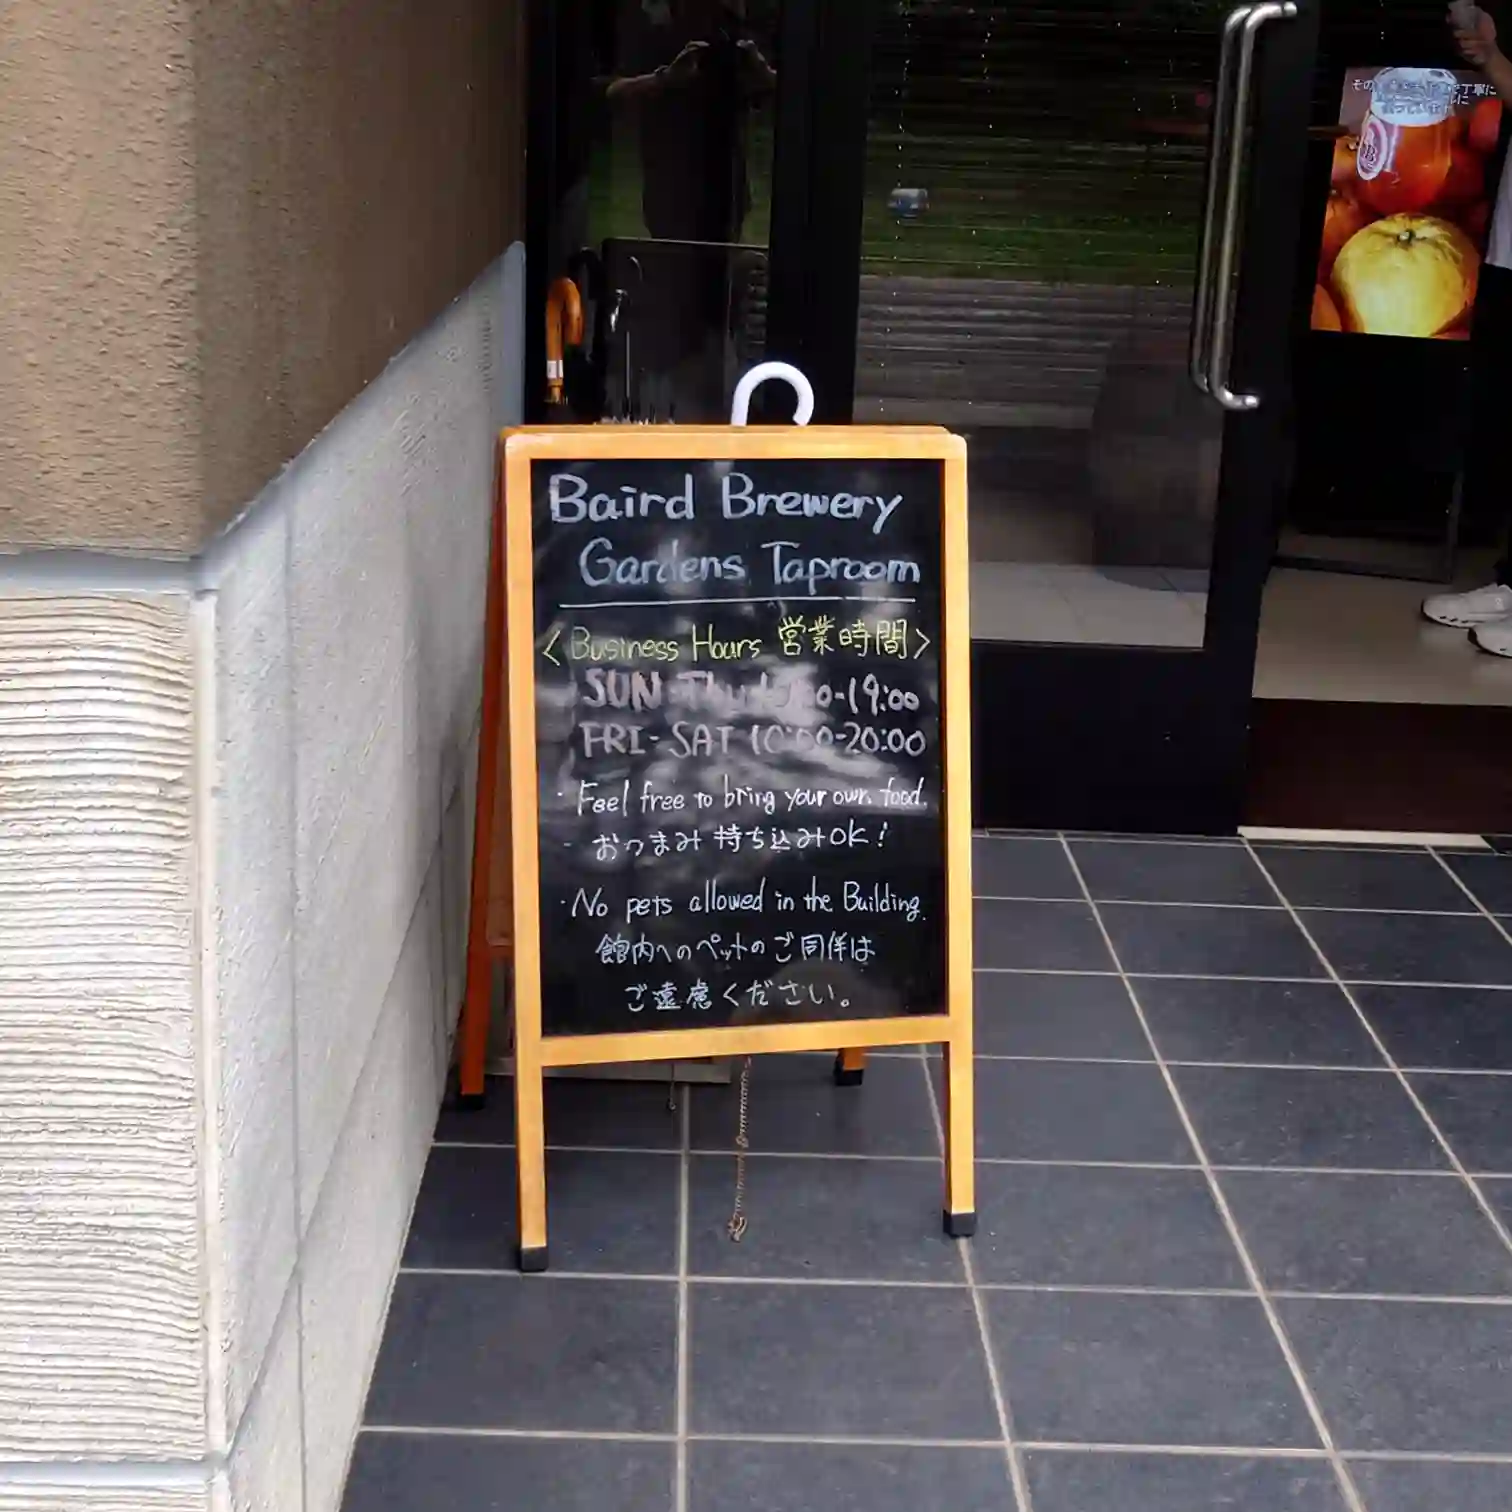 Baird Brewery
Gardens Taproom
<Business Hours 営業時間>
SUN-Thu 0-19:00
FRI-SAT 10:00-20:00
・Feel free to bring your own food.
- おつまみ持ち込みOK!
・No pets allowed in the Building.
館内へのペットのご同伴は
ご遠慮ください。